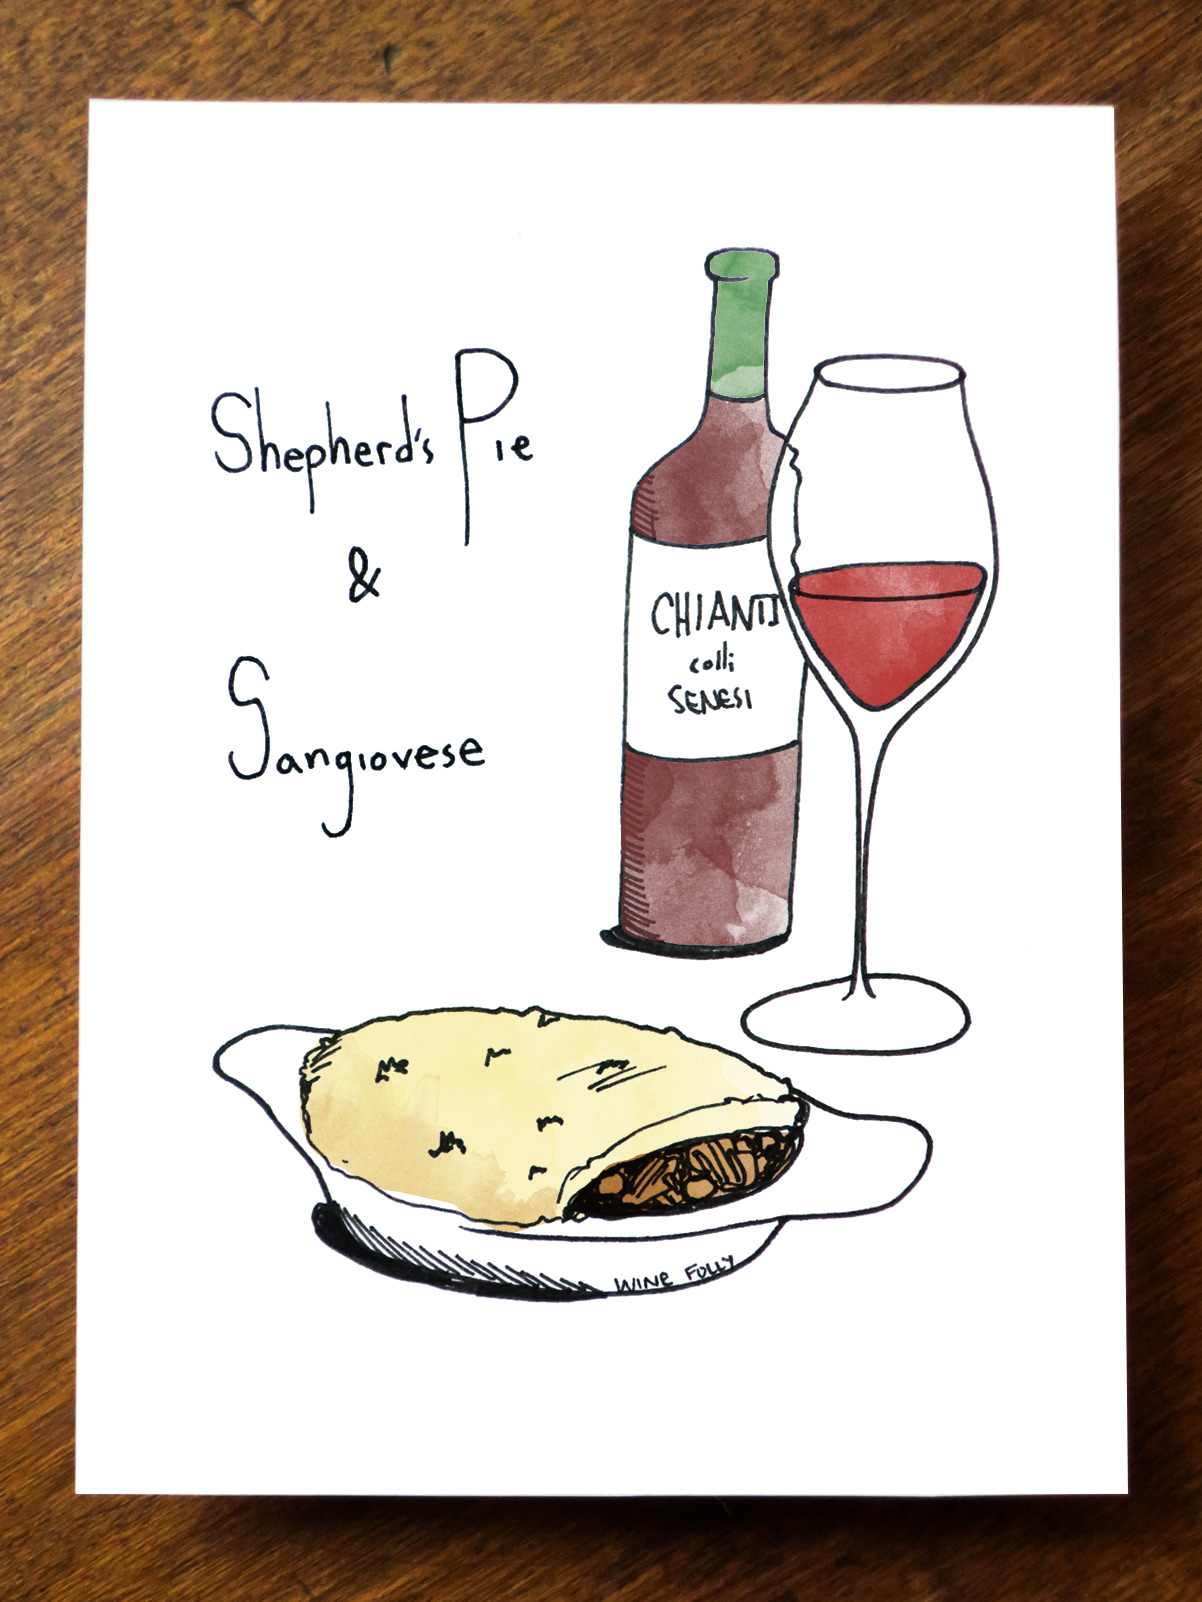 Shepherd's Pie
&
Sangiovese
CHIANTI
colli
SENESI
WINE FOLLY